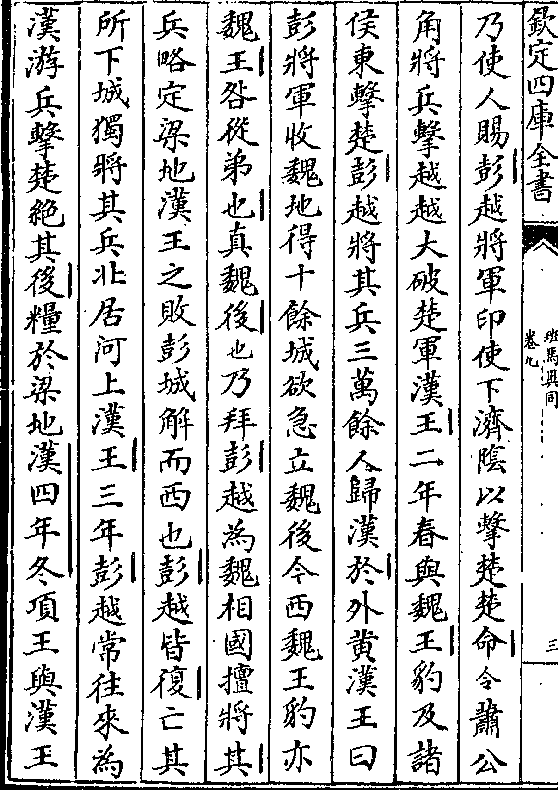 欽定四庫全書
班馬異同
卷九
三
乃使人賜彭越將軍印使下濟隂以擊楚楚命令蕭公
角將兵擊越越大破楚軍漢王二年春與魏王豹及諸
侯東擊楚彭越將其兵三萬餘人歸漢於外黄漢王曰
彭將軍收魏地得十餘城欲急立魏後今西魏王豹亦
魏王咎從弟也真魏後也乃拜彭越為魏相國擅將其
兵略定梁地漢王之敗彭城解而西也彭越皆復亡其
所下城獨將其兵北居河上漢王三年彭越常往來為
漢游兵擊楚絶其後糧於梁地漢四年冬項王與漢王